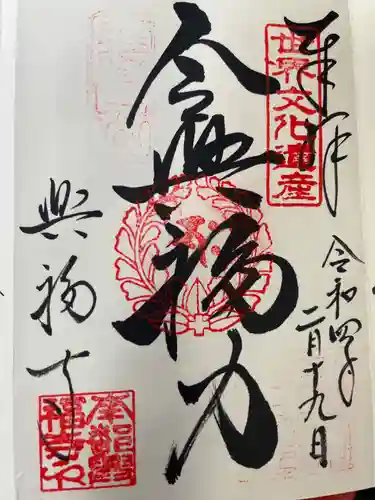 奉拝
世界文化遺産
令和四年二月十九日
令興福力
興福寺